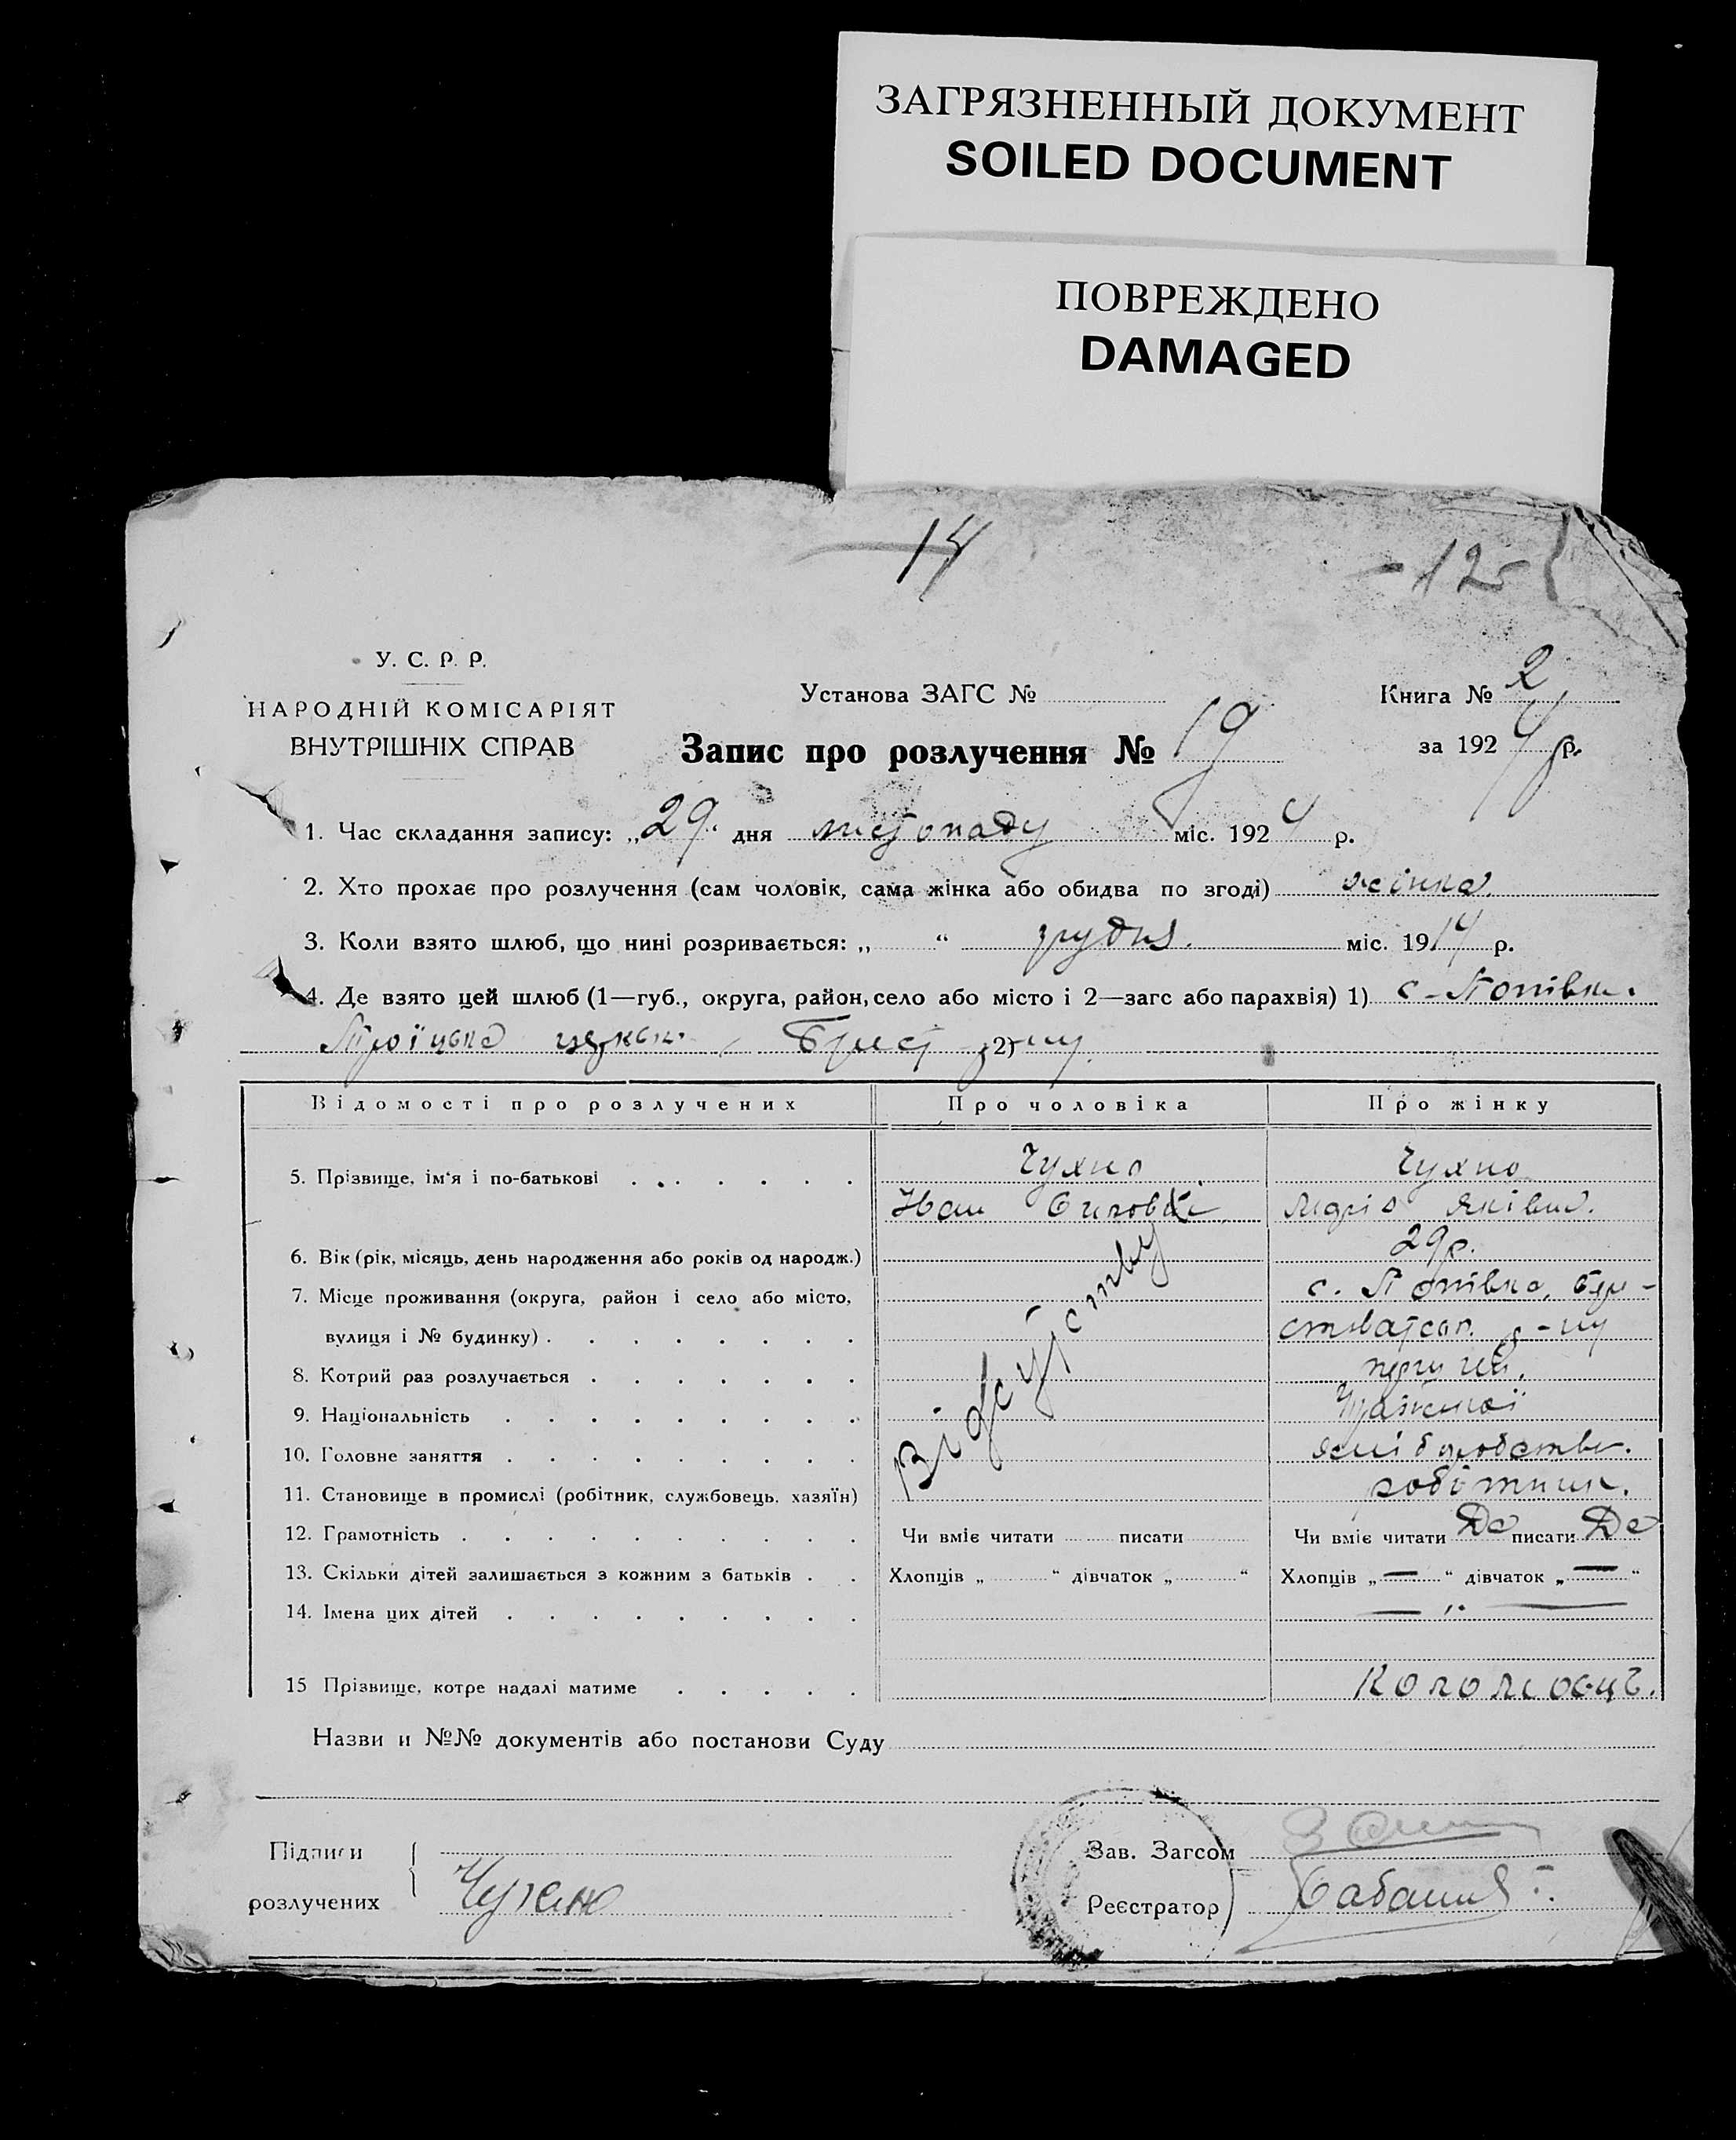 ЗАГРЯЗНЕННЫЙ ДОКУМЕНТ
SOILED DOCUMENT
ПОВРЕЖДЕНО
DAMAGED
14
- 125
У. С. Р. Р.
НАРОДНІЙ КОМІСАРІЯТ
ВНУТРІШНІХ СПРАВ
Установа ЗАГС №
Книга № 2
Запис про розлучення № 19
за 1924 р.
1. Час складання запису: „29" дня листопаду міс. 1924 р.
2. Хто прохає про розлучення (сам чоловік, сама жінка або обидва по згоді) жінка
3. Коли взято шлюб, що нині розривається: „ “ грудня міс. 1914 р.
4. Де взято цей шлюб (1—губ., округа, район, село або місто і 2—загс або парахвія) 1) с-Потівк.
Троїцька церкв. 2)
Відомості про розлучених Про чоловіка Про жінку
5. Прізвище, ім'я і по-батькові Чухно Чухно
Іван Марія Яківна.
6. Вік (рік, місяць, день народження або років од народж.) 29 р.
7. Місце проживання (округа, район і село або місто, с. Потівка,
вулиця і № будинку) р-ну
8. Котрий раз розлучається перший.
9. Національність
10. Головне заняття
11. Становище в промислі (робітник, службовець, хазяїн) робітник.
Відсутству
12. Грамотність Чи вміє читати писати Чи вміє читати Да писати Да
13. Скільки дітей залишається з кожним з батьків Хлопців „ “ дівчаток „ “ Хлопців „—“ дівчаток „—“
14. Імена цих дітей — „ —
15 Прізвище, котре надалі матиме Коломоєць.
Назви и №№ документів або постанови Суду
Підписи
розлучених
Чухно
Зав. Загсом
Реєстратор